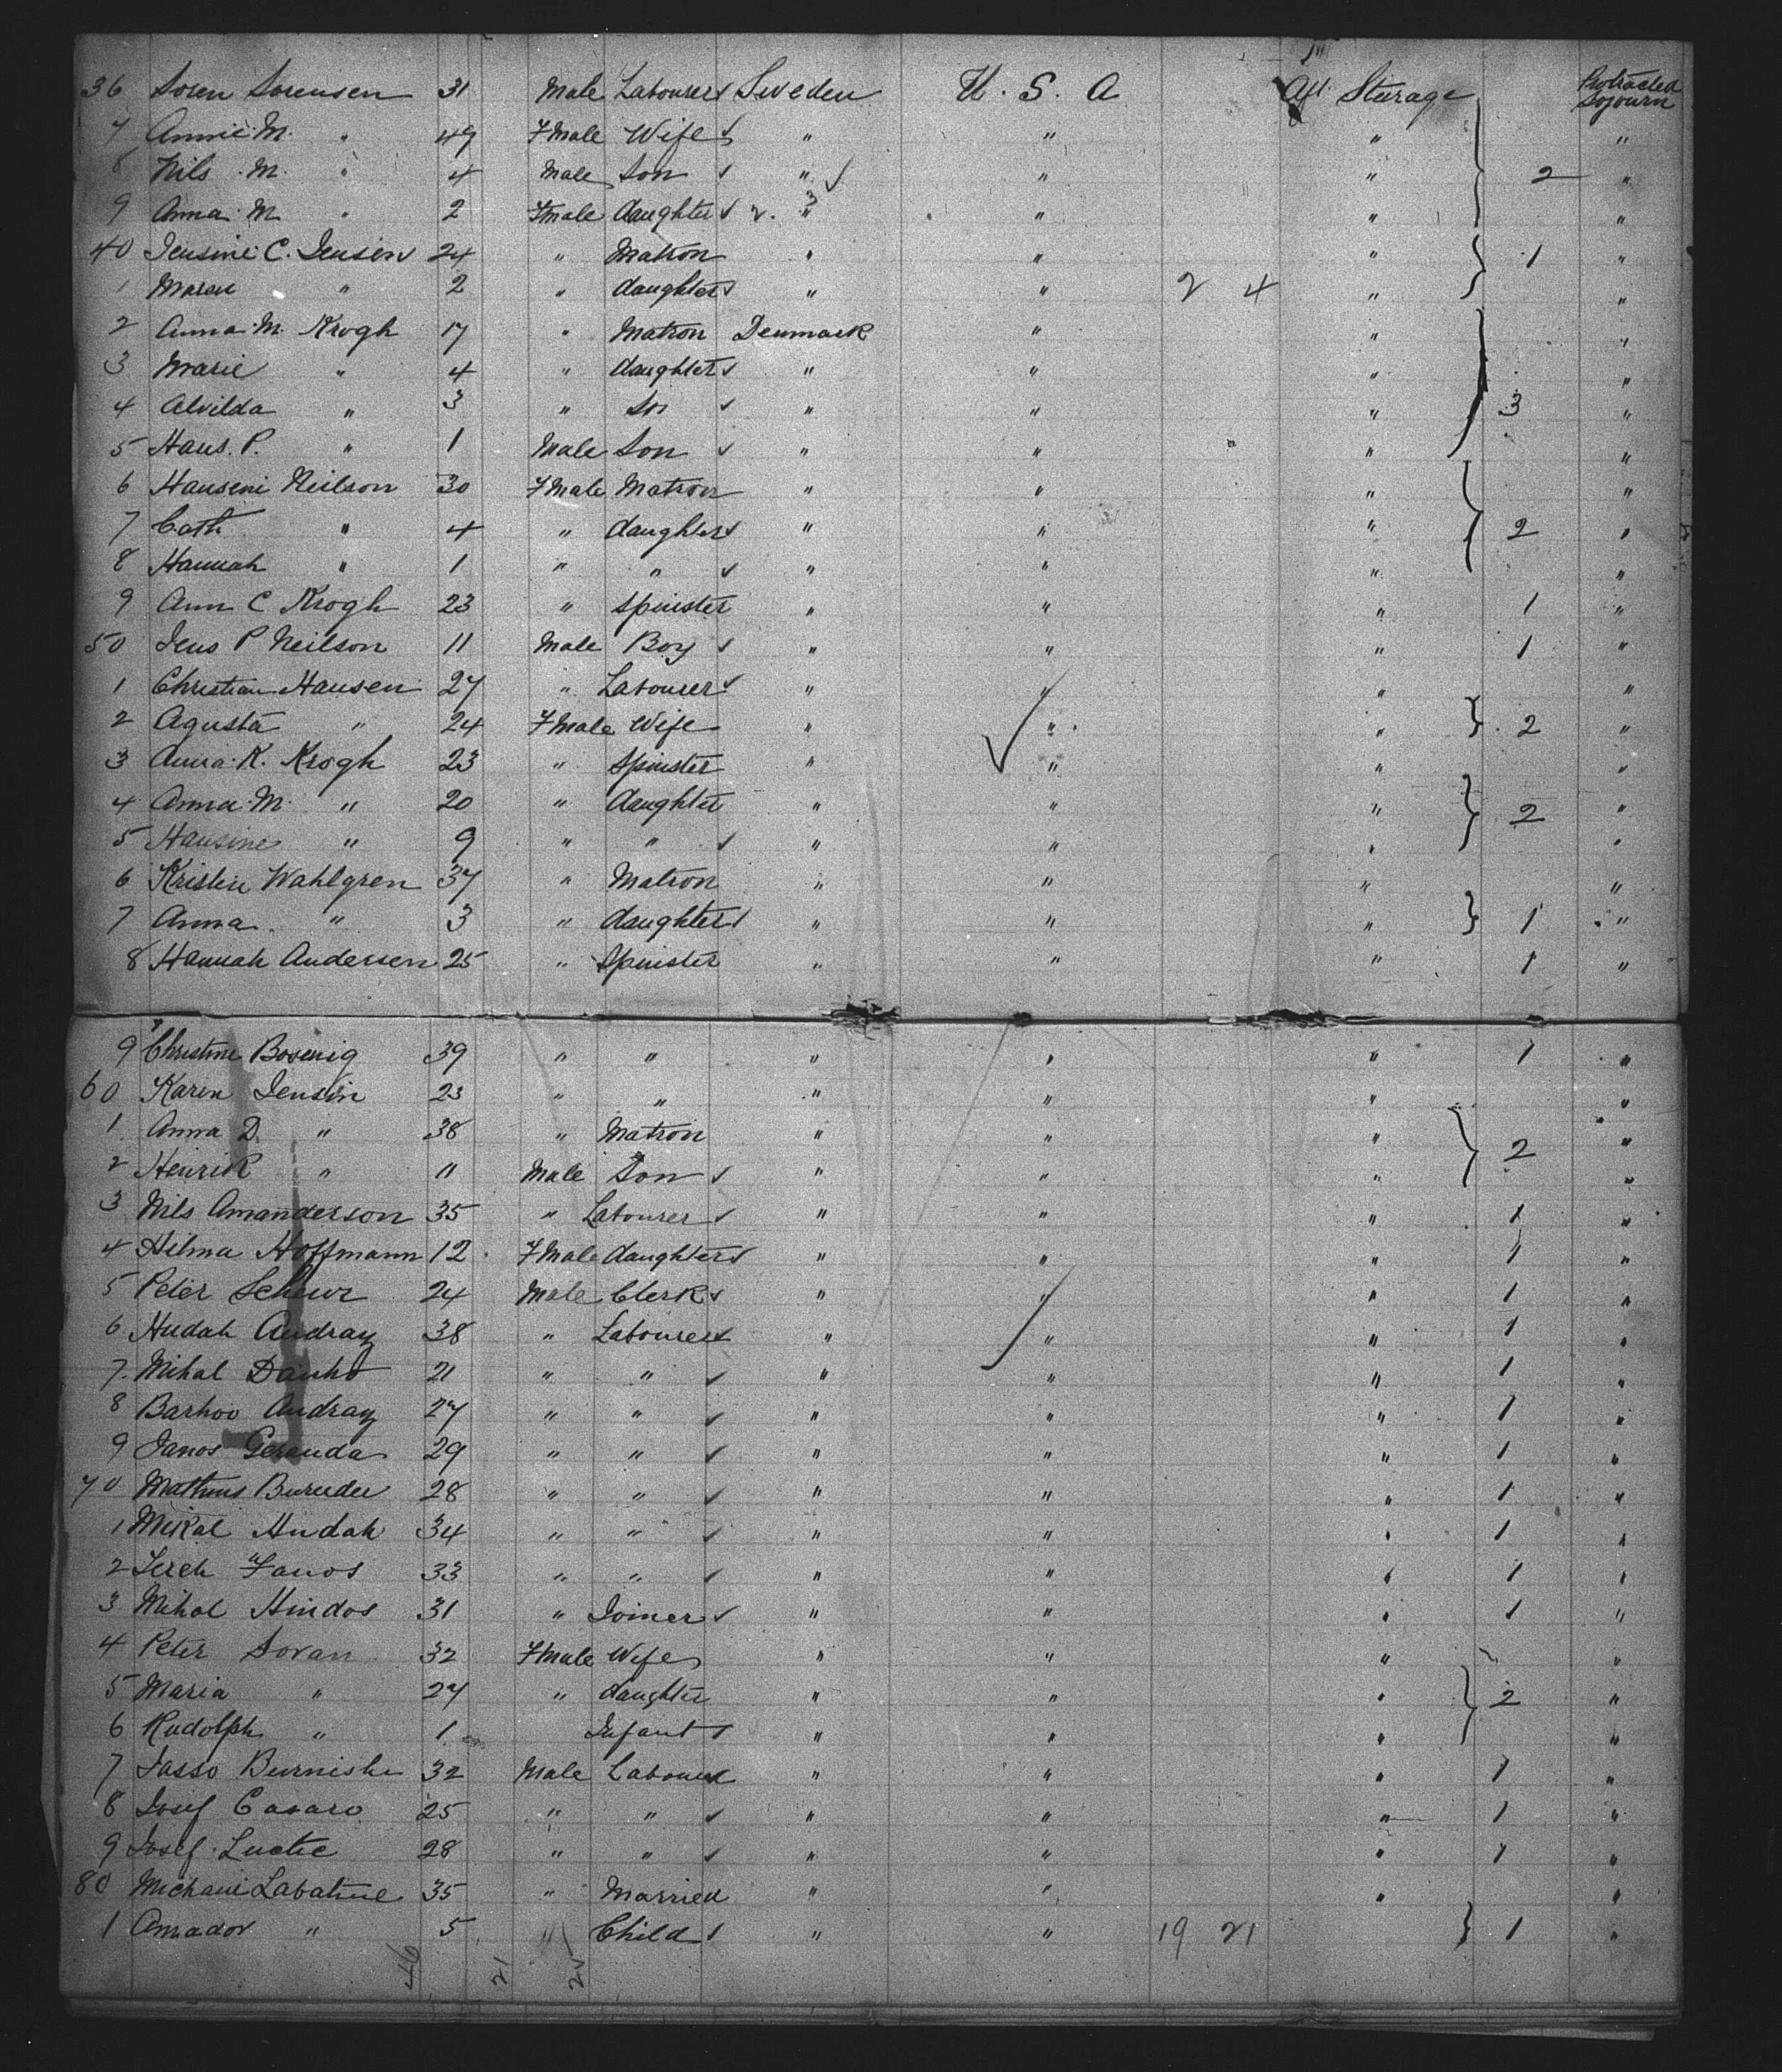 36 Soren Sorensen 31 Male Labourer Sweden U. S. A Aft Sturage Protracted Sojourn
7 Annie M. " 49 Fmale Wife " " " "
8 Nils M. " 4 Male Son " " " 2 "
9 Anna M " 2 Fmale daughter 2. 3 " " " "
40 Jensine C. Jensen 24 " Matron " " " 1 "
1 Maren " 2 " daughter " " 2 4 " "
2 Anna M. Krogh 17 " Matron Denmark " " "
3 Marie " 4 " daughter " " " "
4 Alvilda " 3 " So " " " 3 "
5 Hans. P. " 1 Male Son " " " "
6 Hanseni Neilson 30 Fmale Matron " " " "
7 Cath " 4 " daughter " " " 2 "
8 Hannah " 1 " " " " " "
9 Ann C Krogh 23 " Spinster " " " 1 "
50 Jens P Neilson 11 Male Boy " " " 1 "
1 Christian Hansen 27 " Labourer " " " "
2 Agusta " 24 Fmale Wife " " " 2 "
3 Anna K. Krogh 23 " Spinster " " " "
4 Anna M. " 20 " daughter " " " 2 "
5 Hansine " 9 " " " " " "
6 Kristen Wahlgren 37 " Matron " " " "
7 Anna " 3 " daughter " " " 1 "
8 Hannah Andersen 25 " Spinster " " " 1 "
9 Christine Bosenig 39 " " " " " 1 "
60 Karen Jensen 23 " " " " " "
1 Anna D. " 38 " Matron " " " "
2 Henrik " 11 Male Son " " " 2 "
3 Nils Amanderson 35 " Labourer " " " 1 "
4 Helma Hoffmann 12 Fmale daughter " " " 1 "
5 Peter 24 Male Clerk " " " 1 "
6 Hudak Andray 38 " Labourer " " " 1 "
7 Mihal Danko 21 " " " " " 1 "
8 Barhoo Andray 27 " " " " " 1 "
9 Janos Geranda 29 " " " " " 1 "
70 28 " " " " " 1 "
1 Mikal Hudak 34 " " " " " 1 "
2 Janos 33 " " " " " 1 "
3 Mihal Hindos 31 " Joiner " " " 1 "
4 Peter Sovan 32 Fmale Wife " " " "
5 Maria " 27 " daughter " " " 2 "
6 Rudolph " 1 Infant " " " "
7 Sasso 32 Male Labourer " " " 1 "
8 Josef Casaro 25 " " " " " 1 "
9 Josef 28 " " " " " 1 "
80 35 " Married " " " "
1 Amador " 5 " Child " " 19 21 1 "
46 21 25